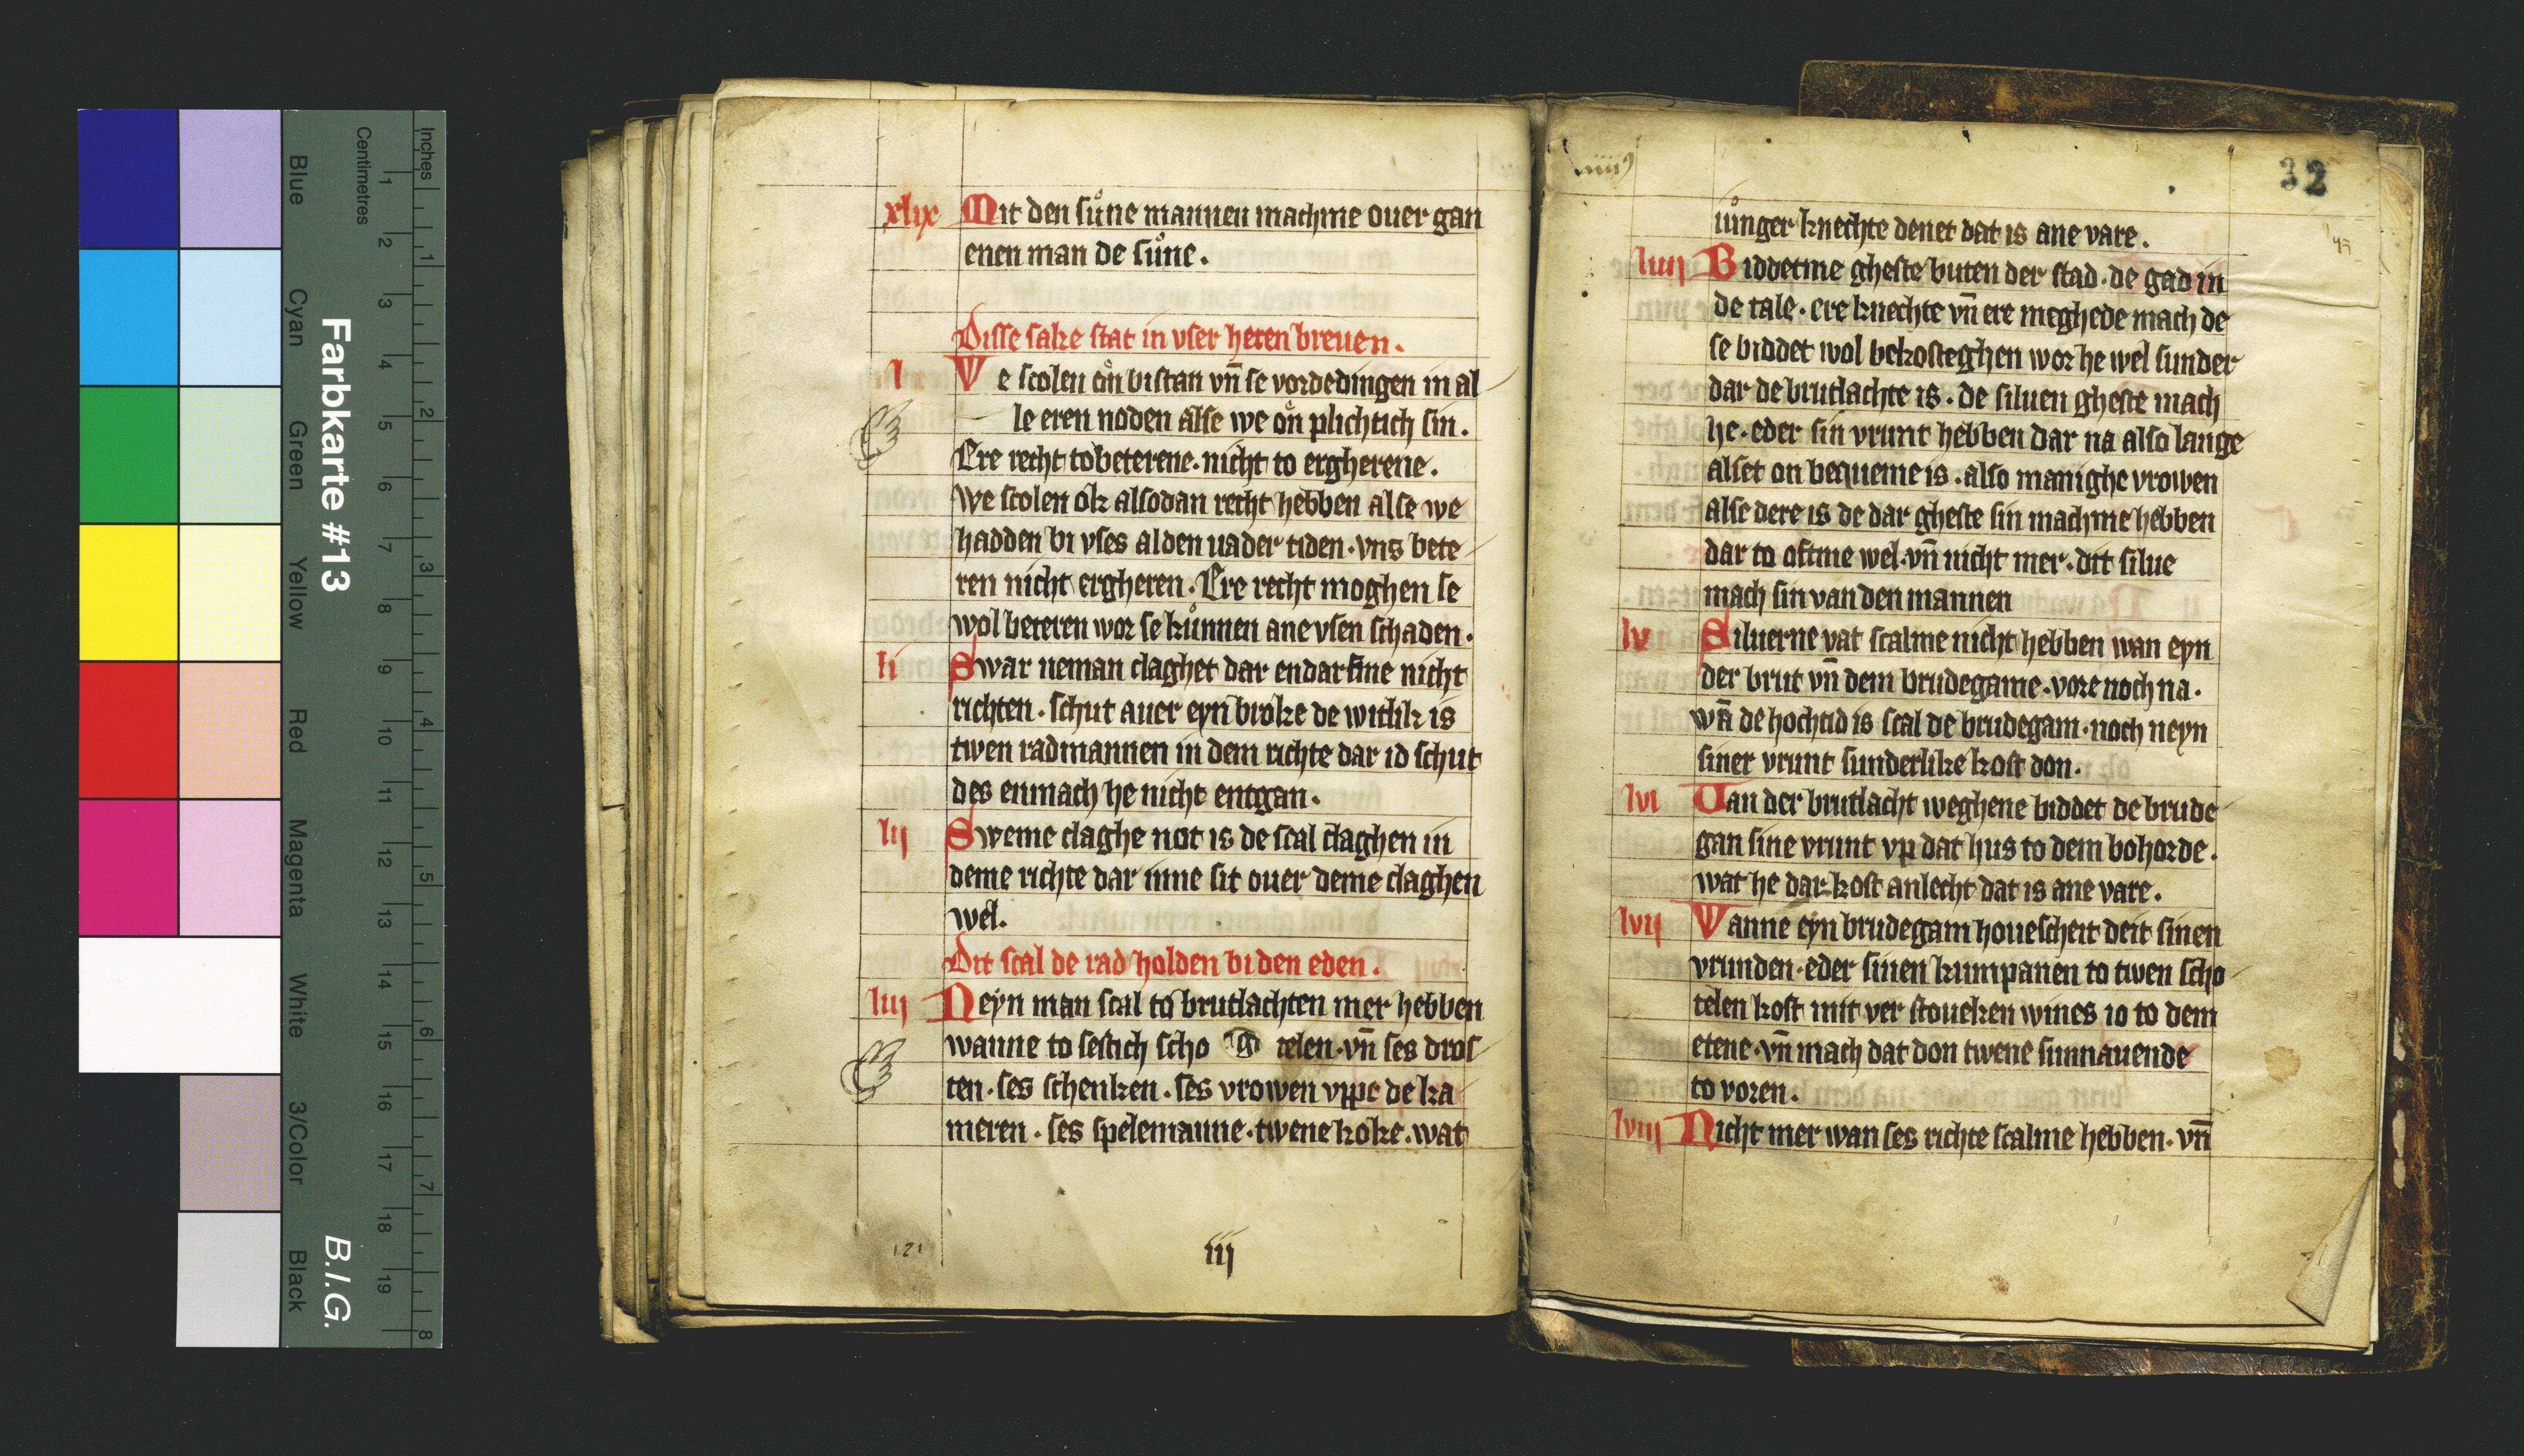 Blue
Cyan
Green
Yellow
Red
Magenta
White
3/Color
Black
Farbkarte #13
B.I.G.
Centimetres
1 2 3 4 5 6 7 8 9 10 11 12 13 14 15 16 17 18 19
Inches
1 2 3 4 5 6 7 8
xlix Mit den sůne mannen machme ouer gan
enen man de sůne.
Disse sake stat in vser heren breuen.
l We scolen on bistan vn̄ se vordedingen in al
le eren noden alse we on plichtich sin.
Ere recht to beterene. nicht to ergherene.
We scolen ok alsodan recht hebben alse we
hadden bi vses alden uader tiden. vns bete
ren nicht ergheren. Ere recht moghen se
wol beteren wor se kůnnen ane vsen schaden.
li Swar neman claghet dar endarfme nicht
richten. schut auer eyn broke de witlik is
twen radmannen in dem richte dar id schut
des enmach he nicht entgan.
lij Sweme claghe not is de scal claghen in
deme richte dar inne sit ouer deme claghen
wel.
Dit scal de rad holden bi den eden.
liij Neyn man scal to brutlachten mer hebben
wanne to sestich scho telen. vn̄ ses dros
ten. ses schenken. ses vrowen vppe de ka
meren. ses spelemanne. twene koke. wat
iij
32
iůnger knechte denet dat is ane vare.
liiij Biddetme gheste buten der stad. de gad in
de tale. ere knechte vn̄ ere meghede mach de
se biddet wol bekosteghen wor he wel sunder
dar de brutlachte is. de siluen gheste mach
he. eder sin vrunt hebben dar na also lange
alset on bequeme is. also manighe vrowen
alse dere is de dar gheste sin machme hebben
dar to oftme wel. vn̄ nicht mer. dit silue
mach sin van den mannen
lv Siluerne vat scalme nicht hebben wan eyn
der brut vn̄ dem brudegame. vore noch na.
wā de hochtid is scal de brudegam. noch neyn
siner vrunt sunderlike kost don.
lvi Van der brutlacht weghene biddet de brude
gan sine vrunt vp dat hus to dem bohorde.
wat he dar kost anlecht dat is ane vare.
lvij Wanne eyn brudegam houescheit deit sinen
vrunden. eder sinen kumpanen to twen scho
telen kost mit ver stoueken wines io to dem
etene. vn̄ mach dat don twene sunnauende
to voren.
lviij Nicht mer wan ses richte scalme hebben. vn̄